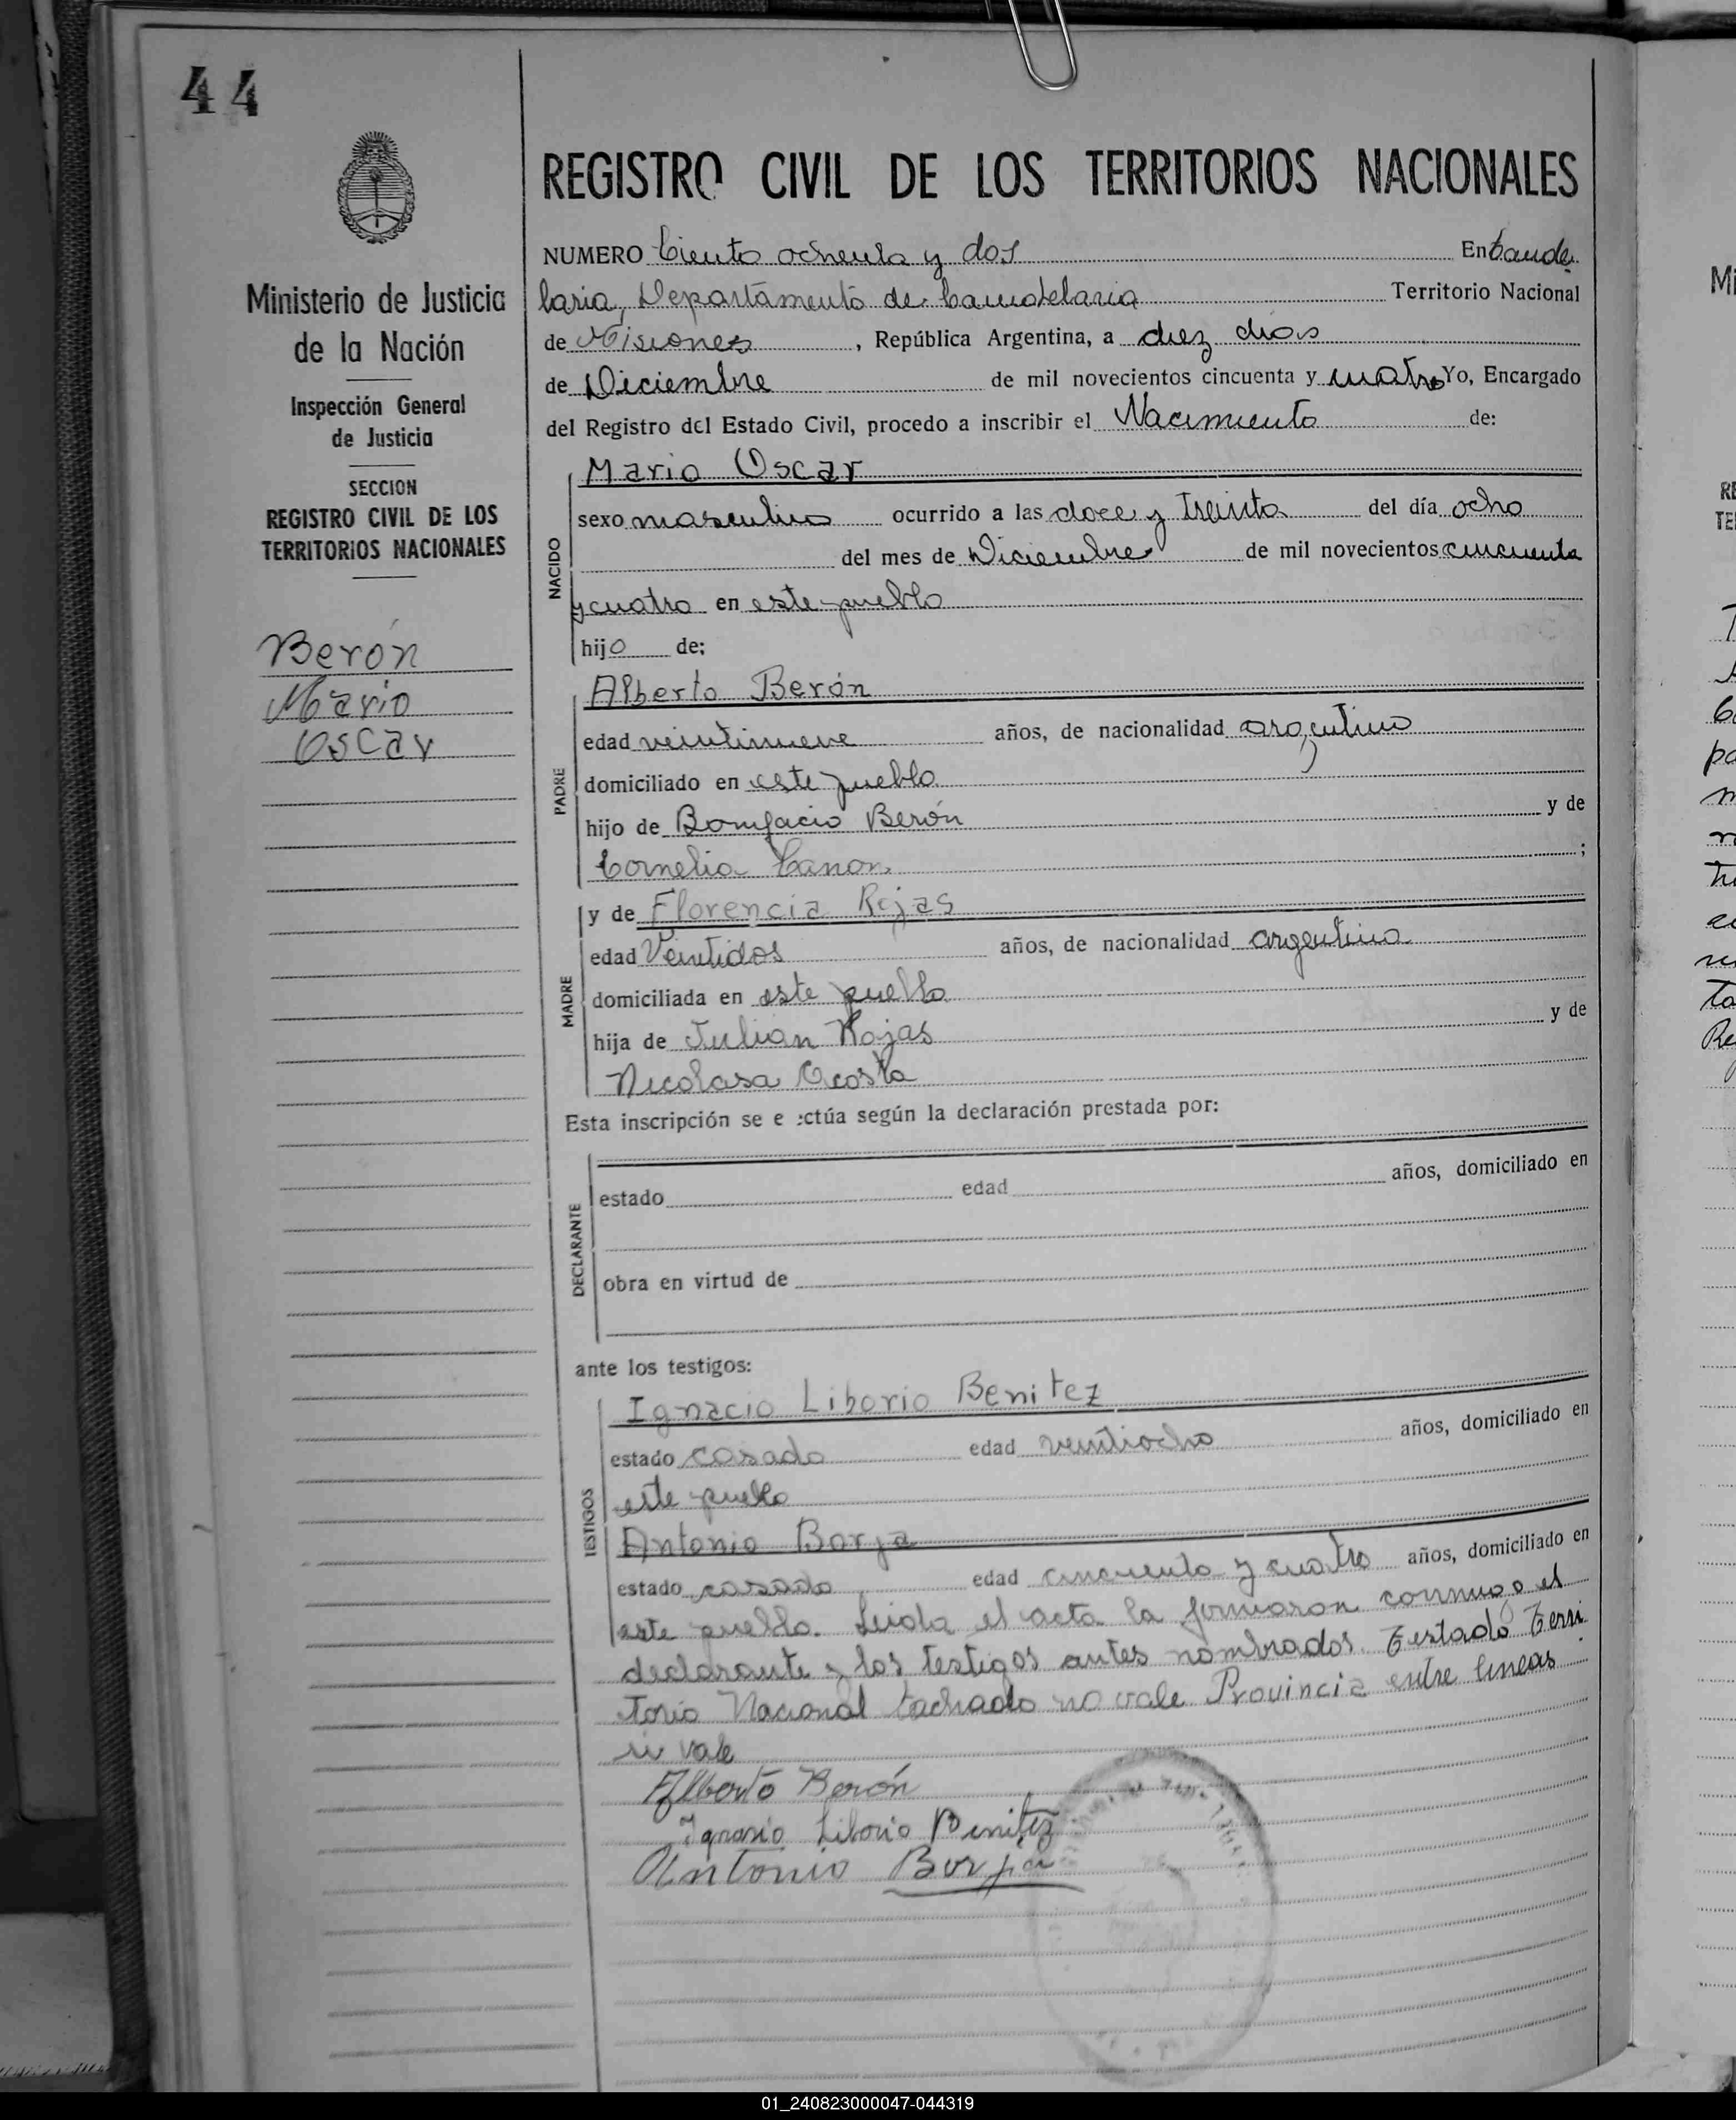 44
REGISTRO CIVIL DE LOS TERRITORIOS NACIONALES
Ministerio de Justicia
de la Nación
Inspección General
de Justicia
SECCION
REGISTRO CIVIL DE LOS
TERRITORIOS NACIONALES
Berón
Mario
Oscar
NUMERO Ciento ochenta y dos En Cande
laria, Departamento de Candelaria Territorio Nacional
de Misiones, República Argentina, a diez dias
de Diciembre de mil novecientos cincuenta y cuatro Yo, Encargado
del Registro del Estado Civil, procedo a inscribir el Nacimiento de:
NACIDO
Mario Oscar
sexo masculino ocurrido a las doce y treinta del día ocho
del mes de Diciembre de mil novecientos cincuenta
y cuatro en este pueblo
hijo de:
PADRE
Alberto Berón
edad veintinueve años, de nacionalidad argentino
domiciliado en este pueblo
hijo de Bonifacio Berón y de
Cornelia Canon;
MADRE
y de Florencia Rojas
edad Ventidos años, de nacionalidad argentina
domiciliada en este pueblo
hija de Julian Rojas y de
Nicolasa Acosta
Esta inscripción se e ectúa según la declaración prestada por:
DECLARANTE
estado edad años, domiciliado en
obra en virtud de
ante los testigos:
TESTIGOS
Ignacio Liborio Benitez
estado casado edad veintiocho años, domiciliado en
este pueblo
Antonio Borja
estado casado edad cincuenta y cuatro años, domiciliado en
este pueblo. Leida el acta la firmaron conmigo el
declarante y los testigos antes nombrados. Testado Terri
torio Nacional tachado no vale Provincia entre lineas
si vale
Alberto Berón
Ignasio Liborio Benitez
Antonio Borja
01_240823000047-044319